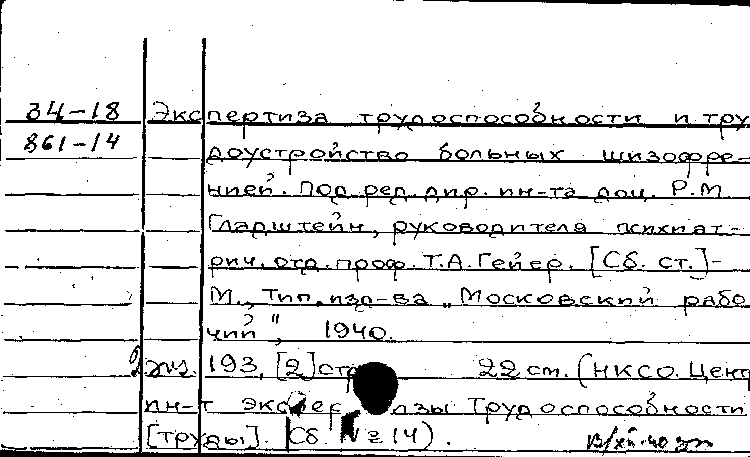 34-18 Экспертиза трудоспособности и тру
861-14 доустройство больных шизофре-
нией. Под ред. дир. ин-та доц. Р.М.
Гладштейн, руководителя психиат-
рич. отд. проф. Т.А. Гейер. [Сб. ст.]-
М., Тип. изд-ва „Московский рабо
чий", 1940.
2 экз. 193, [2] стр 22 см. (НКСО. Цент
ин-т экспер зы Трудоспособности
[труды]. Сб. № 14).